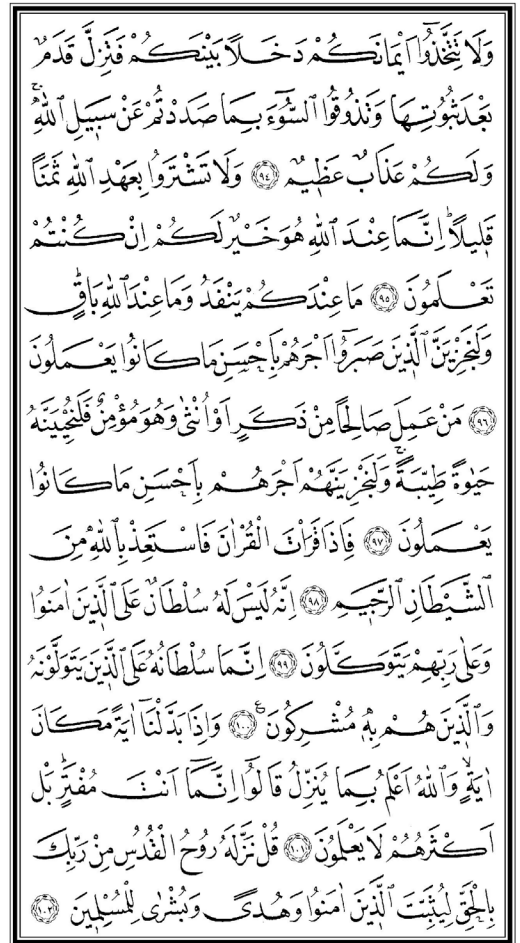 وَلَا تَتَّخِذُٓوا اَيْمَانَكُمْ دَخَلًا بَيْنَكُمْ فَتَزِلَّ قَدَمٌ
بَعْدَ ثُبُوتِهَا وَتَذُوقُوا السُّٓوءَ بِمَا صَدَدْتُمْ عَنْ سَبٖيلِ اللّٰهِۚ
وَلَكُمْ عَذَابٌ عَظٖيمٌ ﴿٩٤﴾ وَلَا تَشْتَرُوا بِعَهْدِ اللّٰهِ ثَمَنًا
قَلٖيلًاؕ اِنَّمَا عِنْدَ اللّٰهِ هُوَ خَيْرٌ لَكُمْ اِنْ كُنْتُمْ
تَعْلَمُونَ ﴿٩٥﴾ مَا عِنْدَكُمْ يَنْفَدُ وَمَا عِنْدَ اللّٰهِ بَاقٍؕ
وَلَنَجْزِيَنَّ الَّذٖينَ صَبَرُٓوا اَجْرَهُمْ بِاَحْسَنِ مَا كَانُوا يَعْمَلُونَ
﴿٩٦﴾ مَنْ عَمِلَ صَالِحًا مِنْ ذَكَرٍ اَوْ اُنْثٰى وَهُوَ مُؤْمِنٌ فَلَنُحْيِيَنَّهُ
حَيٰوةً طَيِّبَةًۚ وَلَنَجْزِيَنَّهُمْ اَجْرَهُمْ بِاَحْسَنِ مَا كَانُوا
يَعْمَلُونَ ﴿٩٧﴾ فَاِذَا قَرَأْتَ الْقُرْاٰنَ فَاسْتَعِذْ بِاللّٰهِ مِنَ
الشَّيْطَانِ الرَّجٖيمِ ﴿٩٨﴾ اِنَّهُ لَيْسَ لَهُ سُلْطَانٌ عَلَى الَّذٖينَ اٰمَنُوا
وَعَلٰى رَبِّهِمْ يَتَوَكَّلُونَ ﴿٩٩﴾ اِنَّمَا سُلْطَانُهُ عَلَى الَّذٖينَ يَتَوَلَّوْنَهُ
وَالَّذٖينَ هُمْ بِهٖ مُشْرِكُونَ ع ﴿١٠٠﴾ وَاِذَا بَدَّلْنَٓا اٰيَةً مَكَانَ
اٰيَةٍۙ وَاللّٰهُ اَعْلَمُ بِمَا يُنَزِّلُ قَالُٓوا اِنَّمَٓا اَنْتَ مُفْتَرٍؕ بَلْ
اَكْثَرُهُمْ لَا يَعْلَمُونَ ﴿١٠١﴾ قُلْ نَزَّلَهُ رُوحُ الْقُدُسِ مِنْ رَبِّكَ
بِالْحَقِّ لِيُثَبِّتَ الَّذٖينَ اٰمَنُوا وَهُدًى وَبُشْرٰى لِلْمُسْلِمٖينَ ﴿١٠٢﴾